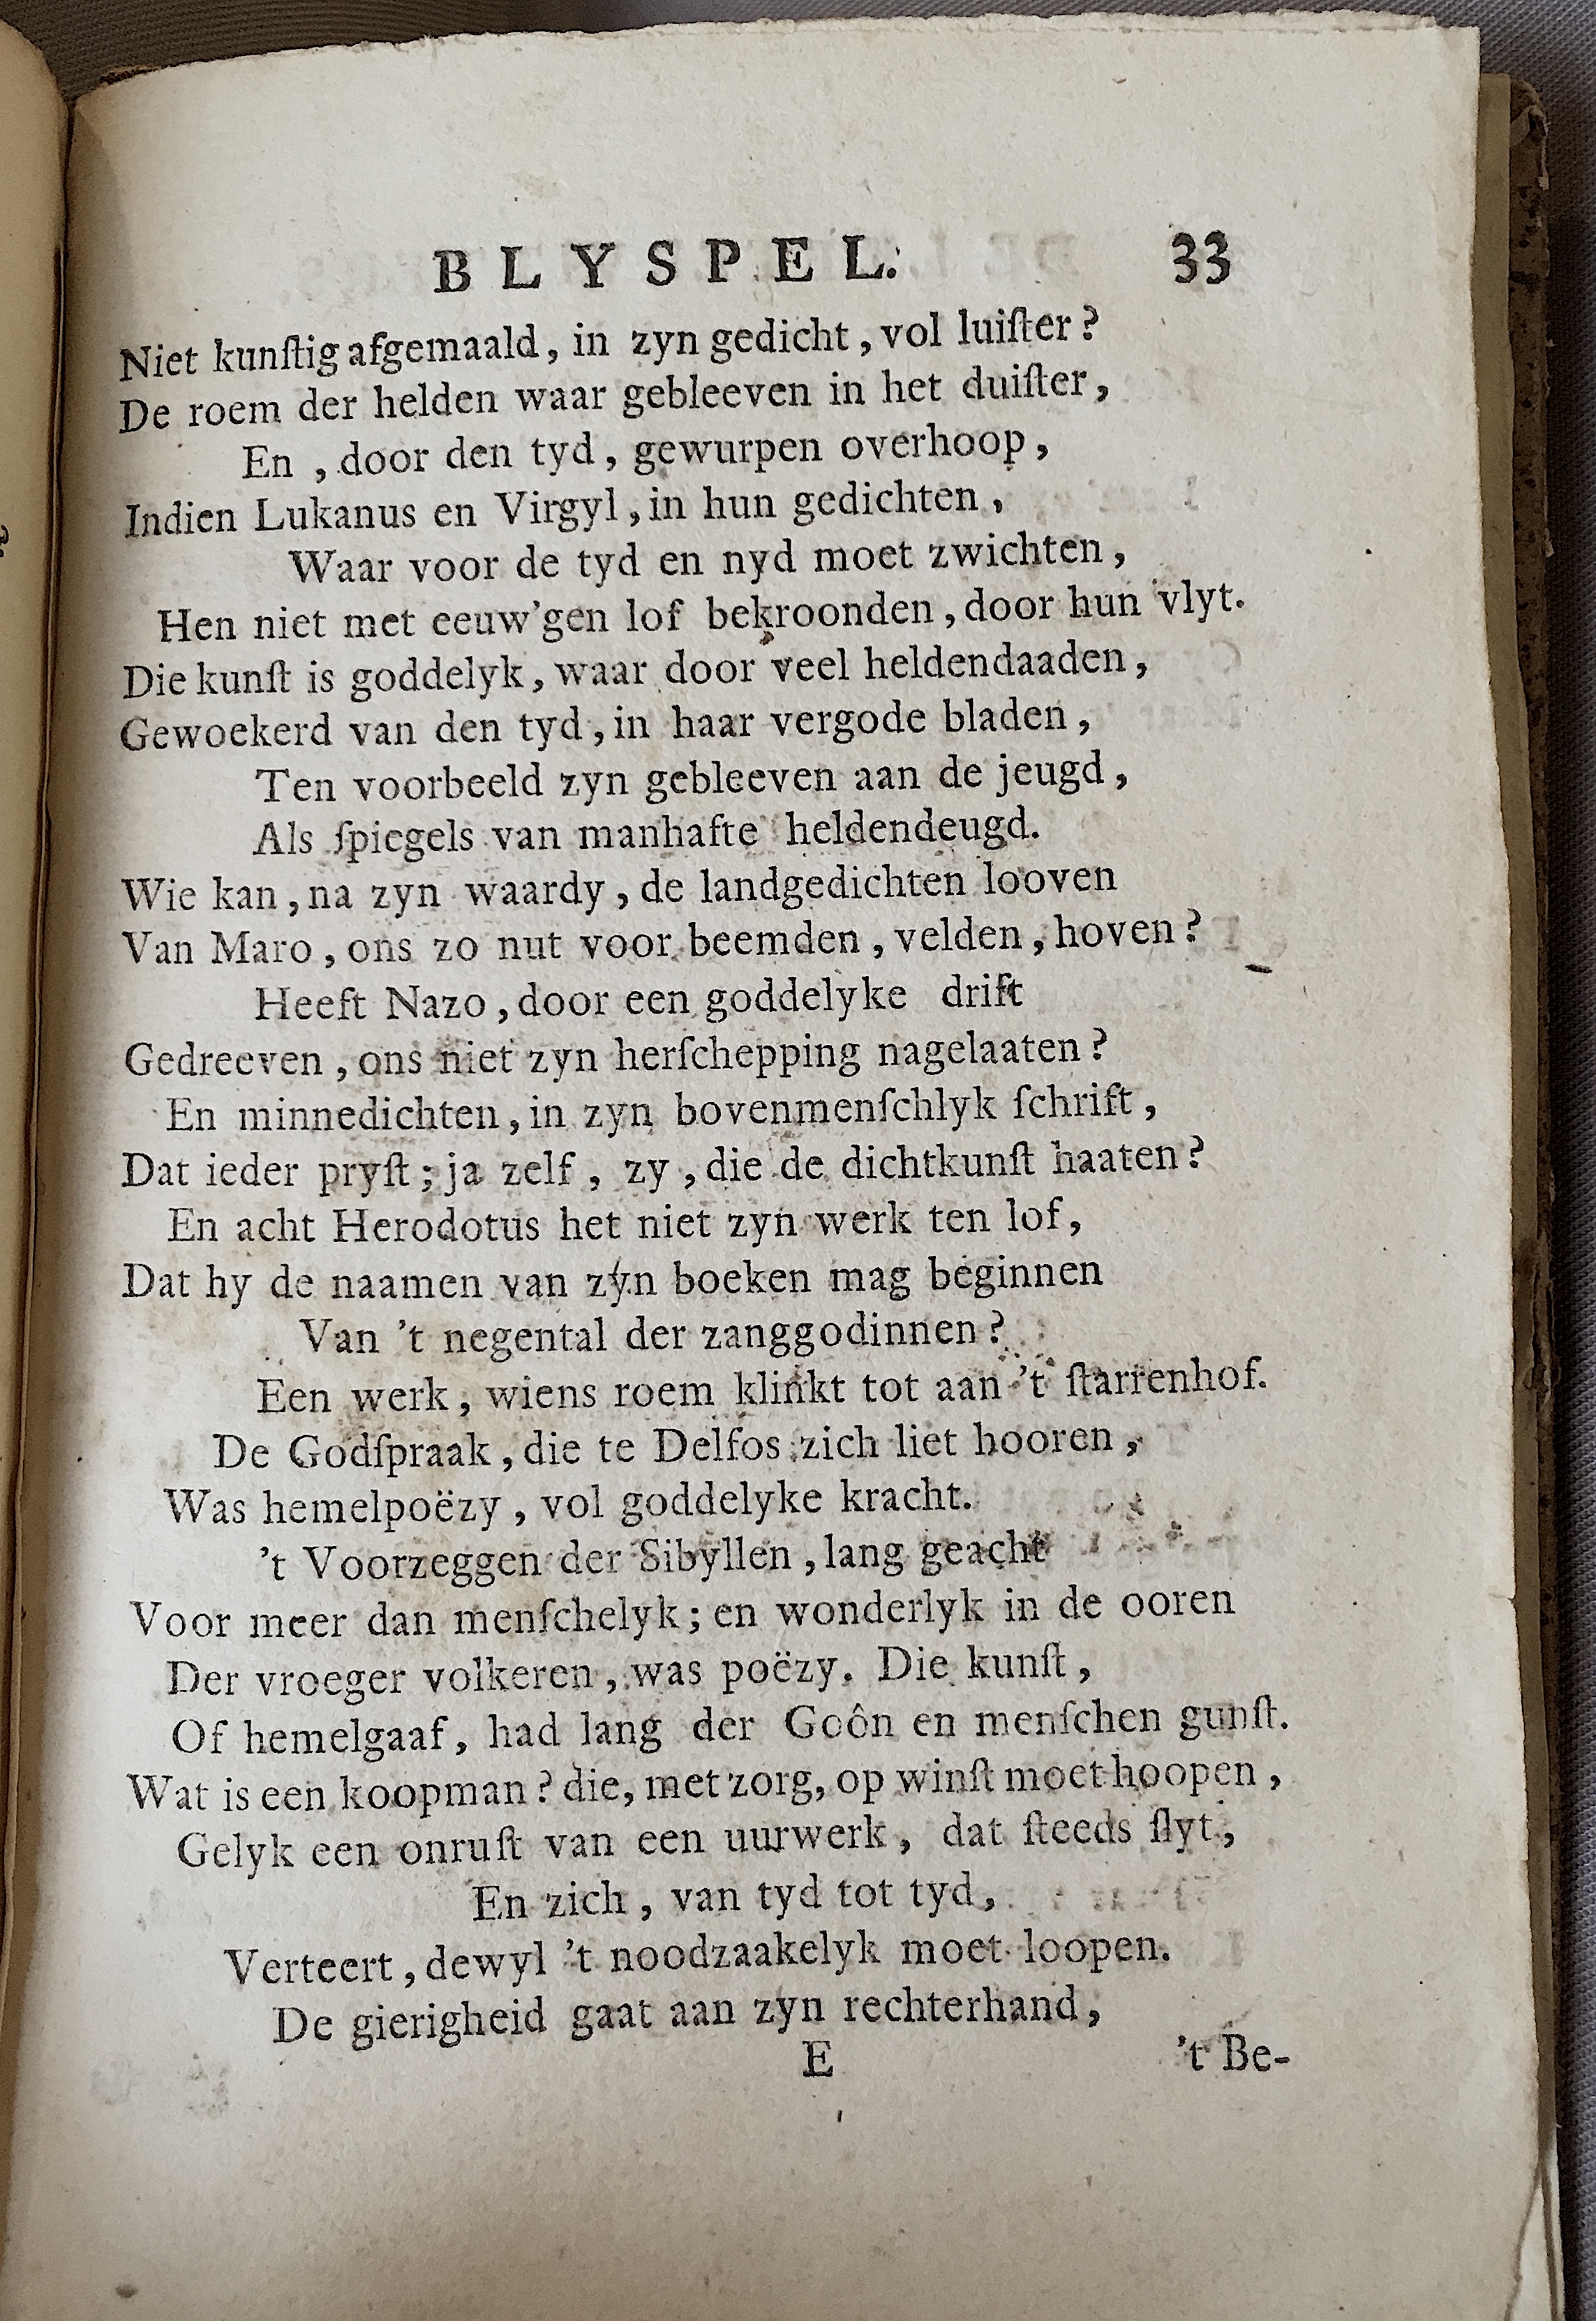 BLYSPEL. 33
Niet kunſtig afgemaald, in zyn gedicht, vol luiſter?
De roem der helden waar gebleeven in het duiſter,
En, door den tyd, gewurpen overhoop,
Indien Lukanus en Virgyl, in hun gedichten,
Waar voor de tyd en nyd moet zwichten,
Hen niet met eeuw'gen lof bekroonden, door hun vlyt.
Die kunſt is goddelyk, waar door veel heldendaaden,
Gewoekerd van den tyd, in haar vergode bladen,
Ten voorbeeld zyn gebleeven aan de jeugd,
Als ſpiegels van manhafte heldendeugd.
Wie kan, na zyn waardy, de landgedichten looven
Van Maro, ons zo nut voor beemden, velden, hoven?
Heeft Nazo, door een goddelyke drift
Gedreeven, ons niet zyn herſchepping nagelaaten?
En minnedichten, in zyn bovenmenſchlyk ſchrift,
Dat ieder pryſt; ja zelf, zy, die de dichtkunſt haaten?
En acht Herodotus het niet zyn werk ten lof,
Dat hy de naamen van zyn boeken mag beginnen
Van 't negental der zanggodinnen?
Een werk, wiens roem klinkt tot aan 't ſtarrenhof.
De Godſpraak, die te Delfos zich liet hooren,
Was hemelpoëzy, vol goddelyke kracht.
't Voorzeggen der Sibyllen, lang geacht
Voor meer dan menſchelyk; en wonderlyk in de ooren
Der vroeger volkeren, was poëzy. Die kunſt,
Of hemelgaaf, had lang der Goôn en menſchen gunſt.
Wat is een koopman? die, met zorg, op winſt moet hoopen,
Gelyk een onruſt van een uurwerk, dat ſteeds ſlyt,
En zich, van tyd tot tyd,
Verteert, dewyl 't noodzaakelyk moet loopen.
De gierigheid gaat aan zyn rechterhand,
E 't Be-